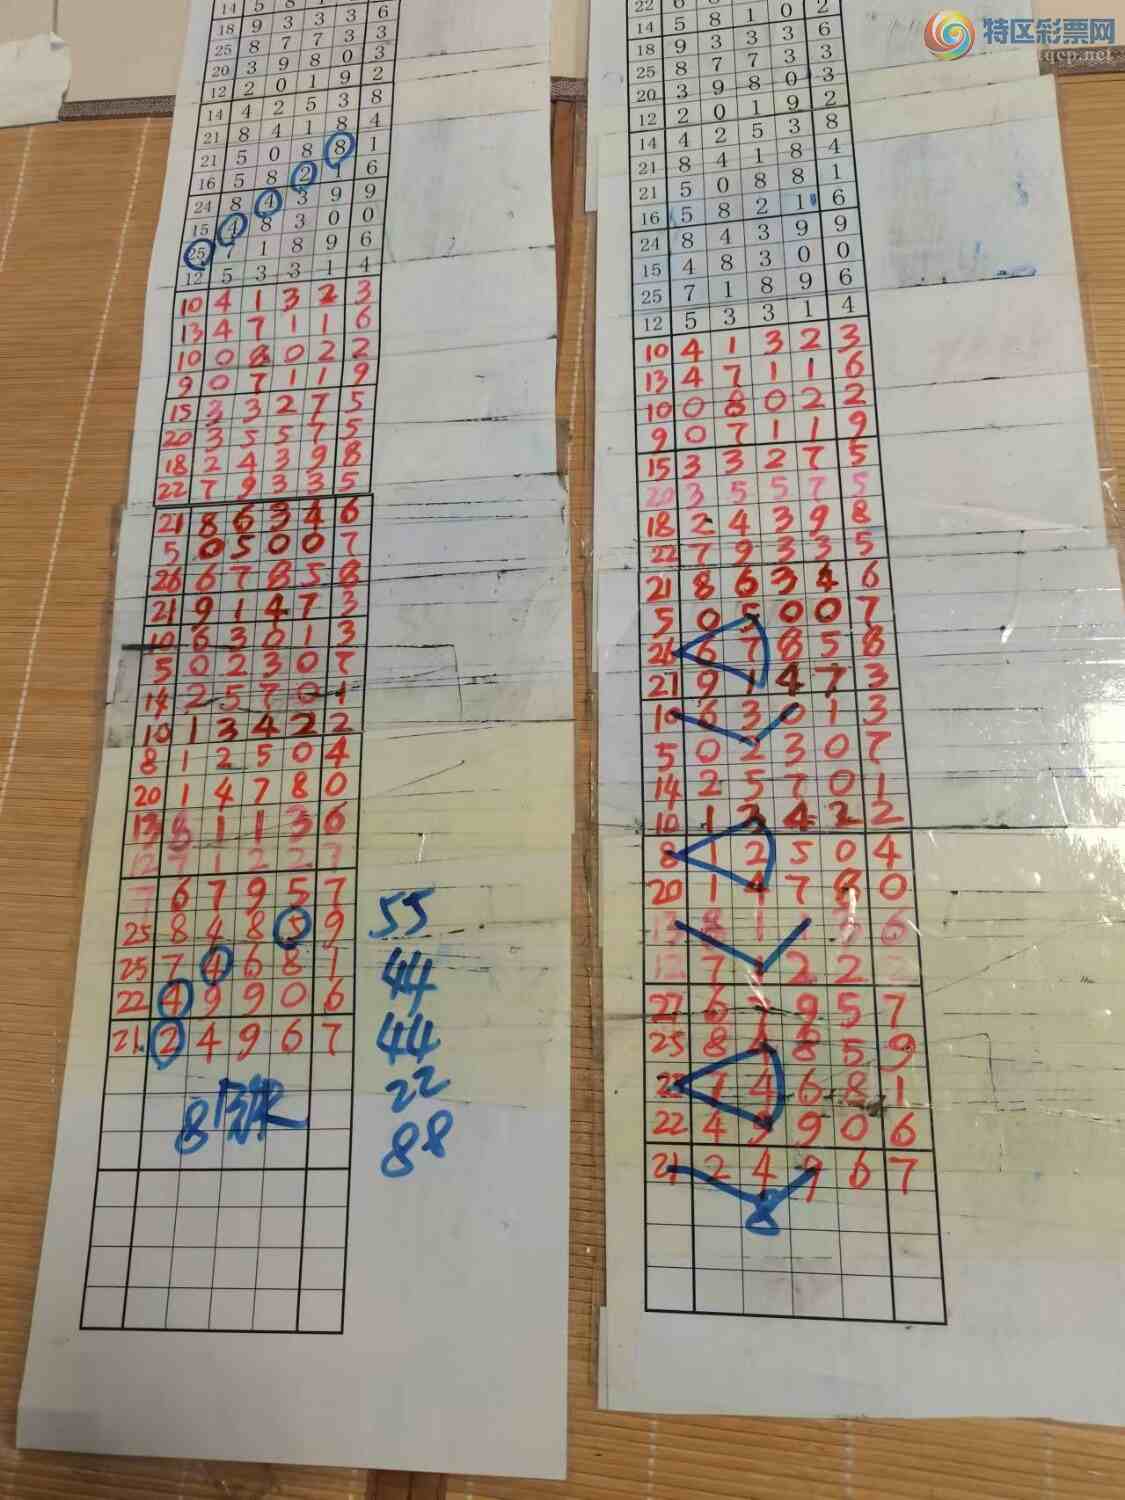 特区彩票网
14 5 8 1
18 9 3 3 3 6
25 8 7 7 3 3
20 3 9 8 0 3
12 2 0 1 9 2
14 4 2 5 3 8
21 8 4 1 8 4
21 5 0 8 8 1
16 5 8 2 1 6
24 8 4 3 9 9
15 4 8 3 0 0
25 7 1 8 9 6
12 5 3 3 1 4
10 4 1 3 2 3
13 4 7 1 1 6
10 0 8 0 2 2
9 0 7 1 1 9
15 3 3 2 7 5
20 3 5 5 7 5
18 2 4 3 9 8
22 7 9 3 3 5
21 8 6 3 4 6
5 0 5 0 0 7
26 6 7 8 5 8
21 9 1 4 7 3
10 6 3 0 1 3
5 0 2 3 0 7
14 2 5 7 0 1
10 1 3 4 2 2
8 1 2 5 0 4
20 1 4 7 8 0
13 8 1 1 3 6
12 7 1 2 2 7
6 7 9 5 7
25 8 4 8 5 9
25 7 4 6 8 1
22 4 9 9 0 6
21 2 4 9 6 7
8
55
44
44
22
88
22 6
14 5 8 1 0 2
18 9 3 3 3 6
25 8 7 7 3 3
20 3 9 8 0 3
12 2 0 1 9 2
14 4 2 5 3 8
21 8 4 1 8 4
21 5 0 8 8 1
16 5 8 2 1 6
24 8 4 3 9 9
15 4 8 3 0 0
25 7 1 8 9 6
12 5 3 3 1 4
10 4 1 3 2 3
13 4 7 1 1 6
10 0 8 0 2 2
9 0 7 1 1 9
15 3 3 2 7 5
20 3 5 5 7 5
18 2 4 3 9 8
22 7 9 3 3 5
21 8 6 3 4 6
5 0 5 0 0 7
26 6 7 8 5 8
21 9 1 4 7 3
10 6 3 0 1 3
5 0 2 3 0 7
14 2 5 7 0 1
10 1 3 4 2 2
8 1 2 5 0 4
20 1 4 7 8 0
13 8 1 1 3 6
12 7 1 2 2 2
27 6 7 9 5 7
25 8 4 8 5 9
25 7 4 6 8 1
22 4 9 9 0 6
21 2 4 9 6 7
8